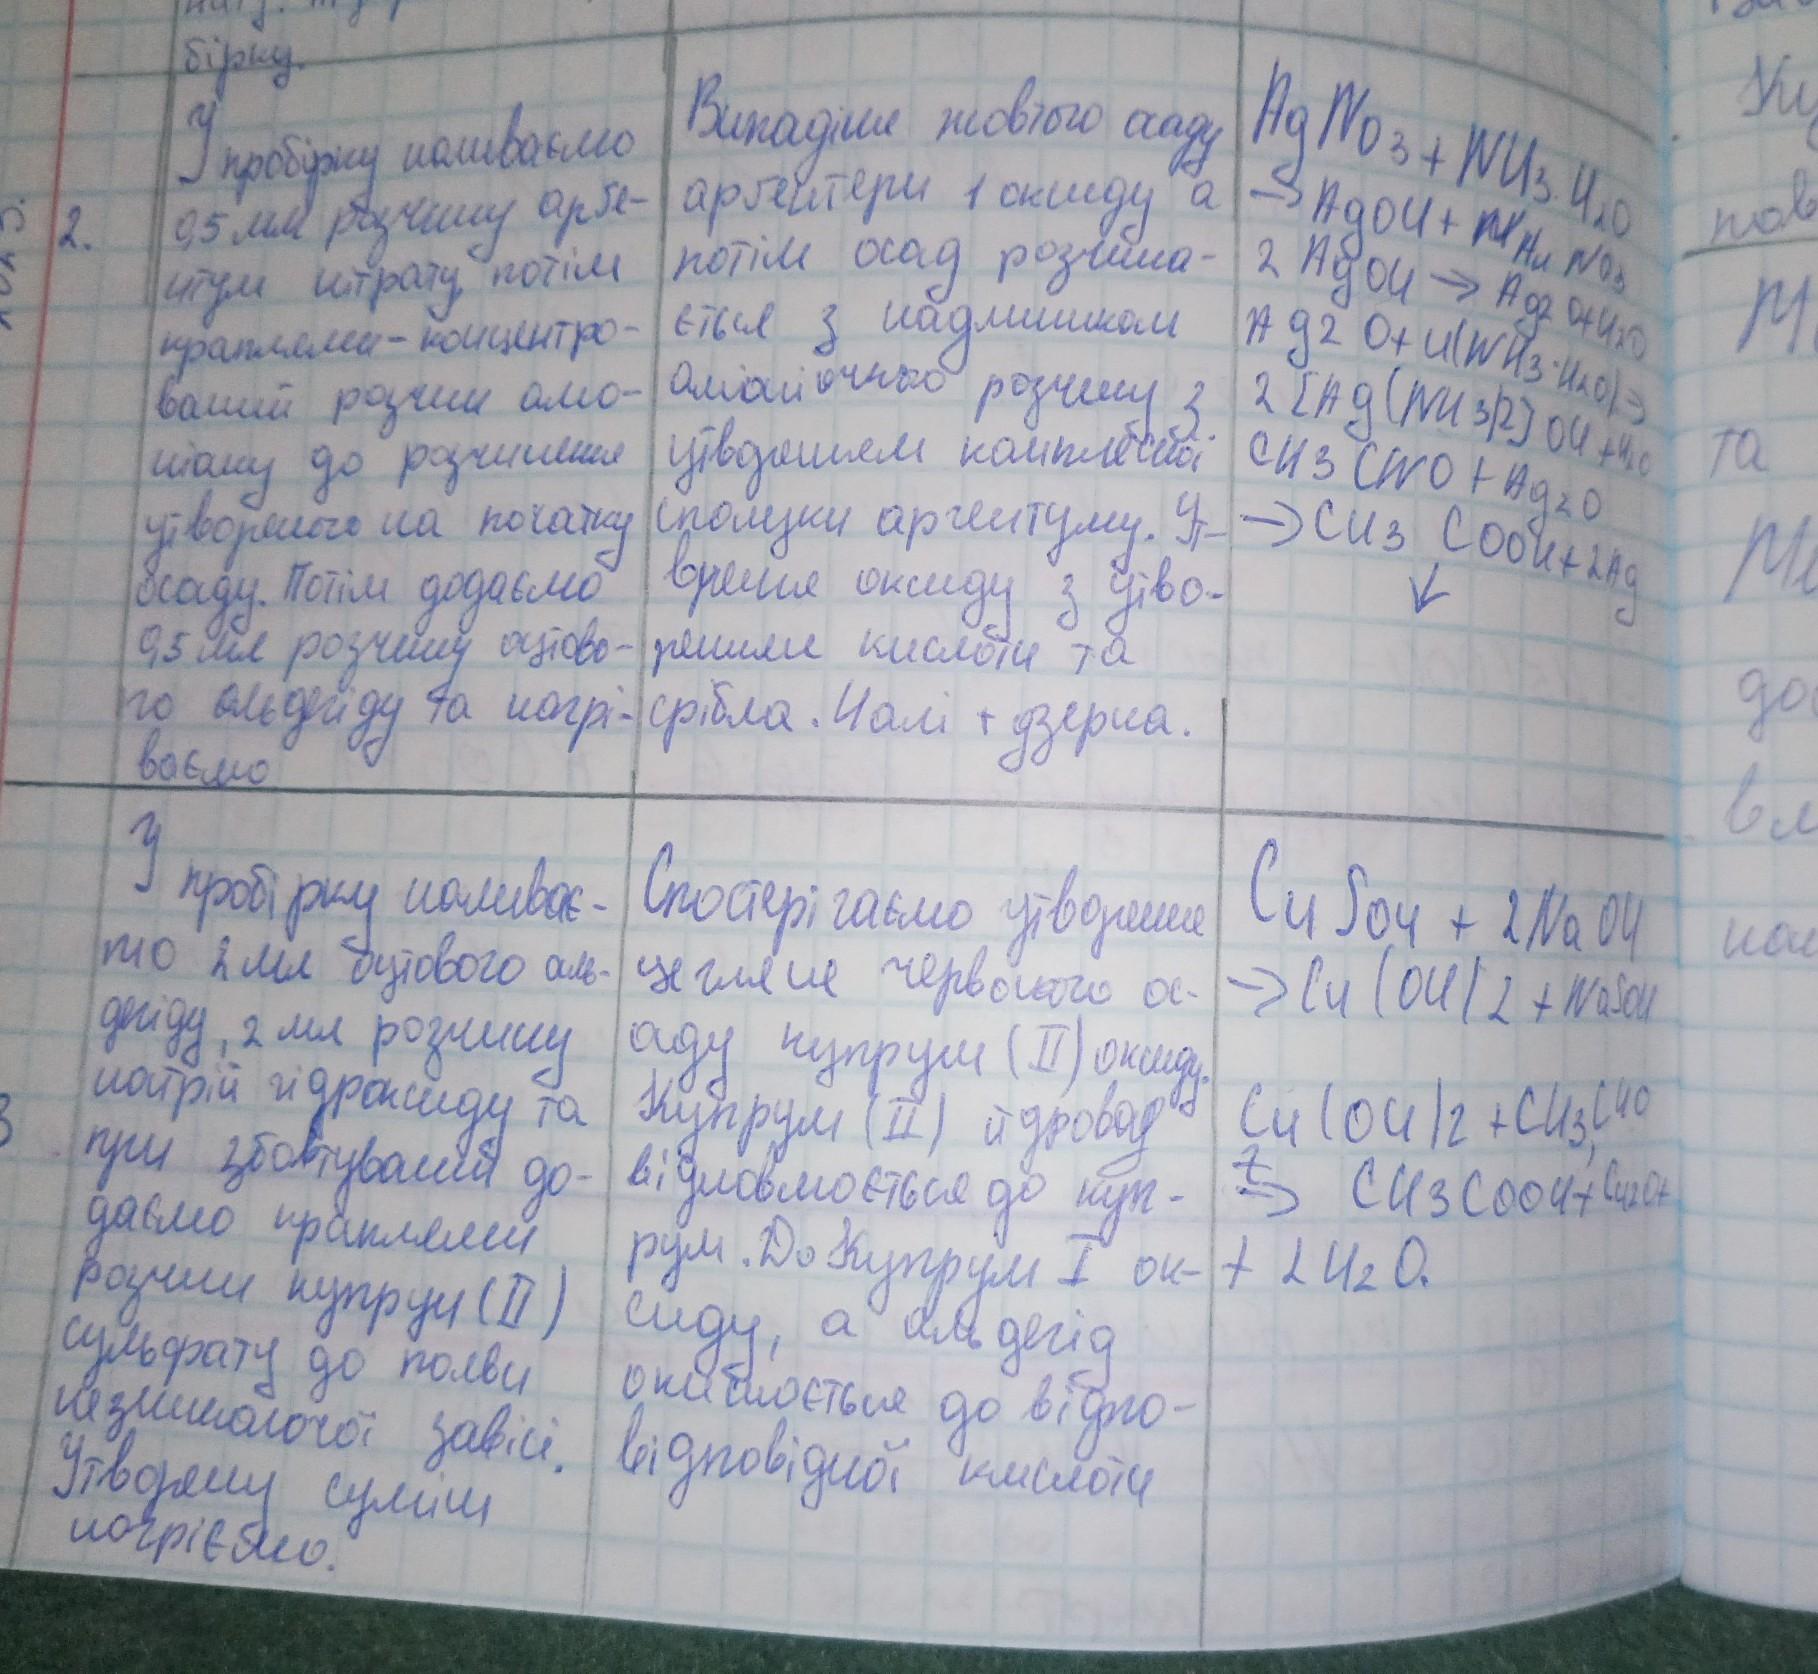 бірку.
2.
У пробірку наливаємо
0,5 мл розчину арге-
нтум нітрату, потім
краплями - концентро-
ваний розчин амо-
ніаку до розчинення
утвореного на початку
осаду. Потім додаємо
0,5 мл розчину оцтово-
го альдегіду та нагрі-
ваємо
Випадіння жовтого осаду
1 оксиду а
потім осад розчиня-
ється з надлишком
розчину з
утворенням комплексної
сполуки аргентуму. Ут-
ворення оксиду з утво-
ренням кислоти та
срібла. Налі т дзерна.
AgNO3 + NH3·H2O
→ AgOH + NH4NO3
2 AgOH → Ag2O + H2O
Ag2O + 4(NH3·H2O) →
2[Ag(NH3)2]OH + H2O
CH3CHO + Ag2O
→ CH3COOH + 2Ag
↓
3
У пробірку наливає-
мо 2 мл оцтового аль-
дегіду, 2 мл розчину
натрій гідроксиду та
при збовтуванні до-
даємо краплями
розчин купрум (II)
сульфату до появи
незникаючої завісі.
Утворену суміш
нагріємо.
Спостерігаємо утворення
цегляне червоного ос-
аду купрум (II) оксиду.
Купрум (II)
відновлюється до куп-
рум. До Купрум I ок-
сиду, а альдегід
окиснюється до відпо-
відповідної кислоти
CuSO4 + 2NaOH
→ Cu(OH)2 + NaSO4
Cu(OH)2 + CH3CHO
t→ CH3COOH + Cu2O+
+ 2H2O.
та